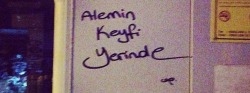 Alemin
Keyfi
Yerinde